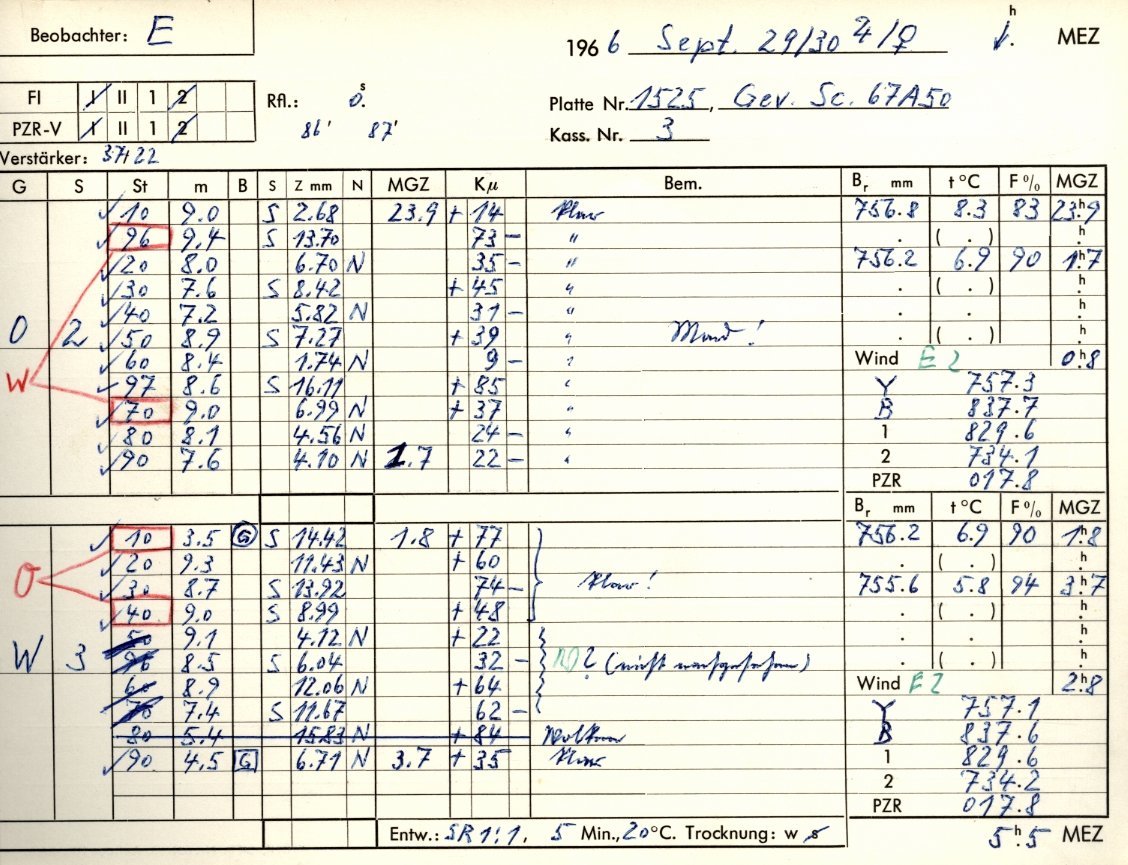 Beobachter: E
1966 Sept. 29/30 ♃/♀ h. MEZ
FI I II 1 2
Rfl.: 0.s
Platte Nr. 1525, Gev. Sc. 67A50
PZR-V I II 1 2
86' 87'
Kass. Nr. 3
Verstärker: 37/22
G S St m B S Z mm N MGZ Kμ Bem. Br mm t °C F % MGZ
10 9.0 S 2.68 23.9 + 14 klar 756.8 8.3 83 23h9
96 9.4 S 13.70 73 – " . ( . ) h.
20 8.0 6.70 N 35 – " 756.2 6.9 90 1h7
30 7.6 S 8.42 + 45 " . ( . ) h.
40 7.2 5.82 N 31 – " . . h.
O 2 50 8.9 S 7.27 + 39 " Mond! . ( . ) h.
60 8.4 1.74 N 9 – " Wind E 2 0h8
W 97 8.6 S 16.11 + 85 " Y 757.3
70 9.0 6.99 N + 37 " B 837.7
80 8.1 4.56 N 24 – " 1 829.6
90 7.6 4.10 N 1.7 22 – " 2 734.1
PZR 017.8
Br mm t °C F % MGZ
10 3.5 G S 14.42 1.8 + 77 756.2 6.9 90 1h8
O 20 9.3 11.43 N + 60 . ( . ) h.
30 8.7 S 13.92 74 – klar! 755.6 5.8 94 3h7
40 9.0 S 8.99 + 48 . ( . ) h.
50 9.1 4.12 N + 22 . . h.
W 3 96 8.5 S 6.04 32 – ? (nicht nachgesehen) . ( . ) h.
60 8.9 12.06 N + 64 Wind E 2 2h8
70 7.4 S 11.67 62 – Y 757.1
80 5.4 15.83 N + 84 Wolken B 837.6
90 4.5 G 6.71 N 3.7 + 35 klar 1 829.6
2 734.2
PZR 017.8
Entw.: SR 1:1, 5 Min., 20°C. Trocknung: w s 5h.5 MEZ